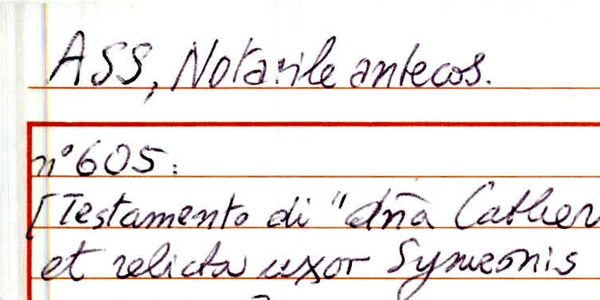 ASS, Notarile antecos.
n° 605:
[Testamento di "dña Cather
et relicta uxor Symeonis